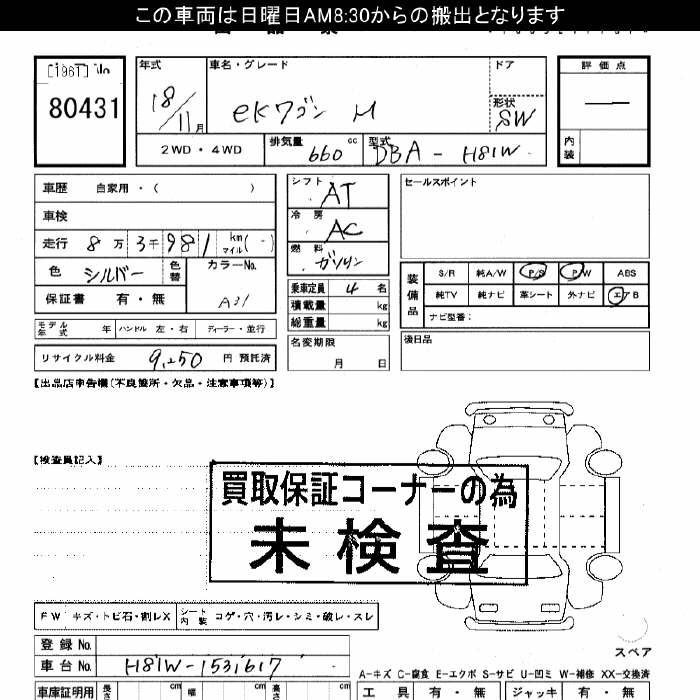 この車両は日曜日AM8:30からの搬出となります
[1967] No
80431
年式 18/11月
車名・グレード ekワゴン M
ドア
形状 SW
2WD・4WD
排気量 660 cc
型式 DBA-H81W
評価点
内装
車歴 自家用・( )
車検
走行 8万3千981 km マイル(-)
色 シルバー 色替 カラーNo. A31
保証書 有・無
モデル年式 年 ハンドル 左・右 ディーラー・並行
リサイクル料金 9,250 円 預託済
シフト AT
冷房 AC
燃料 ガソリン
乗車定員 4 名
積載量 kg
総重量 kg
名変期限
月 日
セールスポイント
装備品
S/R 純A/W P/S P/W ABS
純TV 純ナビ 革シート 外ナビ エアB
ナビ型番:
後日品
【出品店申告欄(不良箇所・欠品・注意事項等)】
【検査員記入】
買取保証コーナーの為
未検査
FW キズ・トビ石・割レX シート内装 コゲ・穴・汚レ・シミ・破レ・スレ
登録No.
車台No. H81W-1531617
スペア
A-キズ C-腐食 E-エクボ S-サビ U-凹ミ W-補修 XX-交換済
車庫証明用 長さ cm 幅 cm 高さ cm
工具 有・無 ジャッキ 有・無